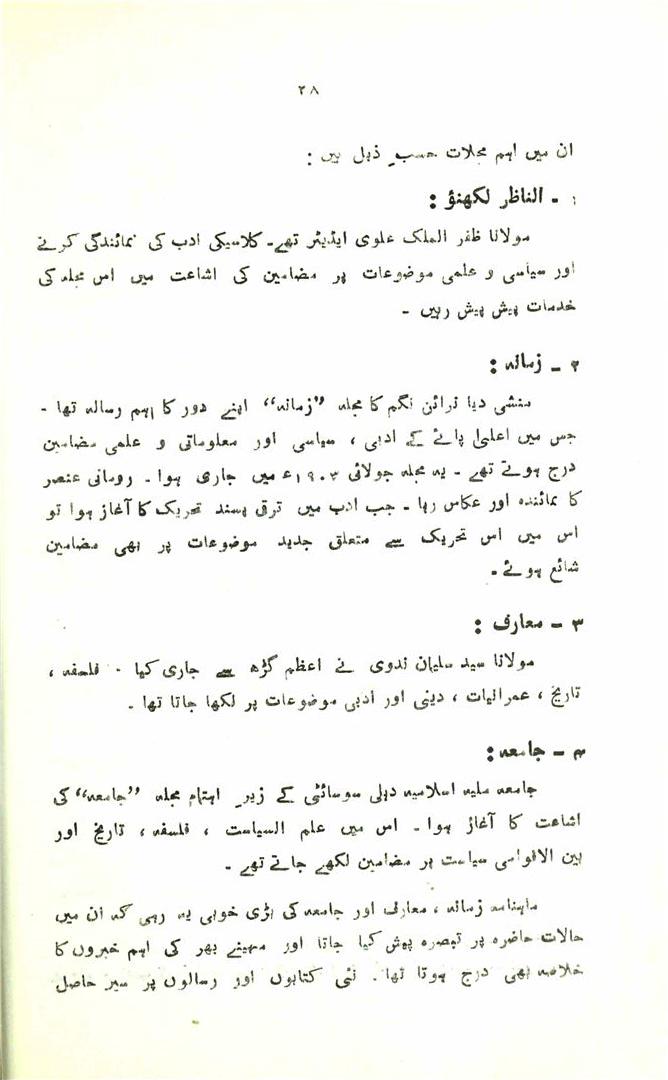 ۲۸
ان میں اہم مجلات حسبِ ذیل ہیں :
۱ - الناظر لکھنؤ :
مولانا ظفر الملک علوی ایڈیٹر تھے۔ کلاسیکی ادب کی نمائندگی کرنے
اور سیاسی و علمی موضوعات پر مضامین کی اشاعت میں اس مجلہ کی
خدمات پیش پیش رہیں ۔
۲ - زمانہ :
منشی دیا نرائن نگم کا مجلہ ”زمانہ“ اپنے دور کا اہم رسالہ تھا ۔
جس میں اعلیٰ پائے کے ادبی ، سیاسی اور معلوماتی و علمی مضامین
درج ہوتے تھے ۔ یہ مجلہ جولائی ۱۹۰۳ء میں جاری ہوا ۔ رومانی عنصر
کا نمائندہ اور عکاس رہا ۔ جب ادب میں ترقی پسند تحریک کا آغاز ہوا تو
اس میں اس تحریک سے متعلق جدید موضوعات پر بھی مضامین
شائع ہوئے ۔
۳ - معارف :
مولانا سید سلیمان ندوی نے اعظم گڑھ سے جاری کیا ۔ فلسفہ ،
تاریخ ، عمرانیات ، دینی اور ادبی موضوعات پر لکھا جاتا تھا ۔
۴ - جامعہ :
جامعہ ملیہ اسلامیہ دہلی سوسائٹی کے زیرِ اہتمام مجلہ ”جامعہ“ کی
اشاعت کا آغاز ہوا ۔ اس میں علم السیاست ، فلسفہ ، تاریخ اور
بین الاقوامی سیاست پر مضامین لکھے جاتے تھے ۔
ماہنامہ زمانہ ، معارف اور جامعہ کی بڑی خوبی یہ رہی کہ ان میں
حالات حاضرہ پر تبصرہ پیش کیا جاتا اور مہینے بھر کی اہم خبروں کا
خلاصہ بھی درج ہوتا تھا ۔ نئی کتابوں اور رسالوں پر سیر حاصل